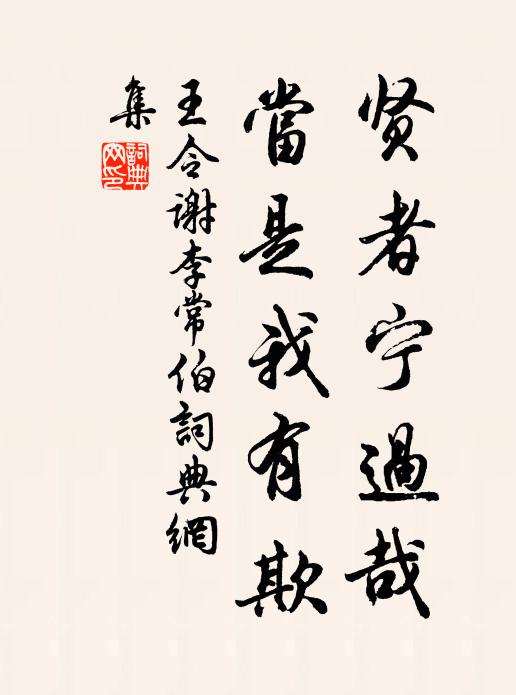 贤者宁過哉
當是我有欺
王令谢李常伯詞典網
集
詞典
网印